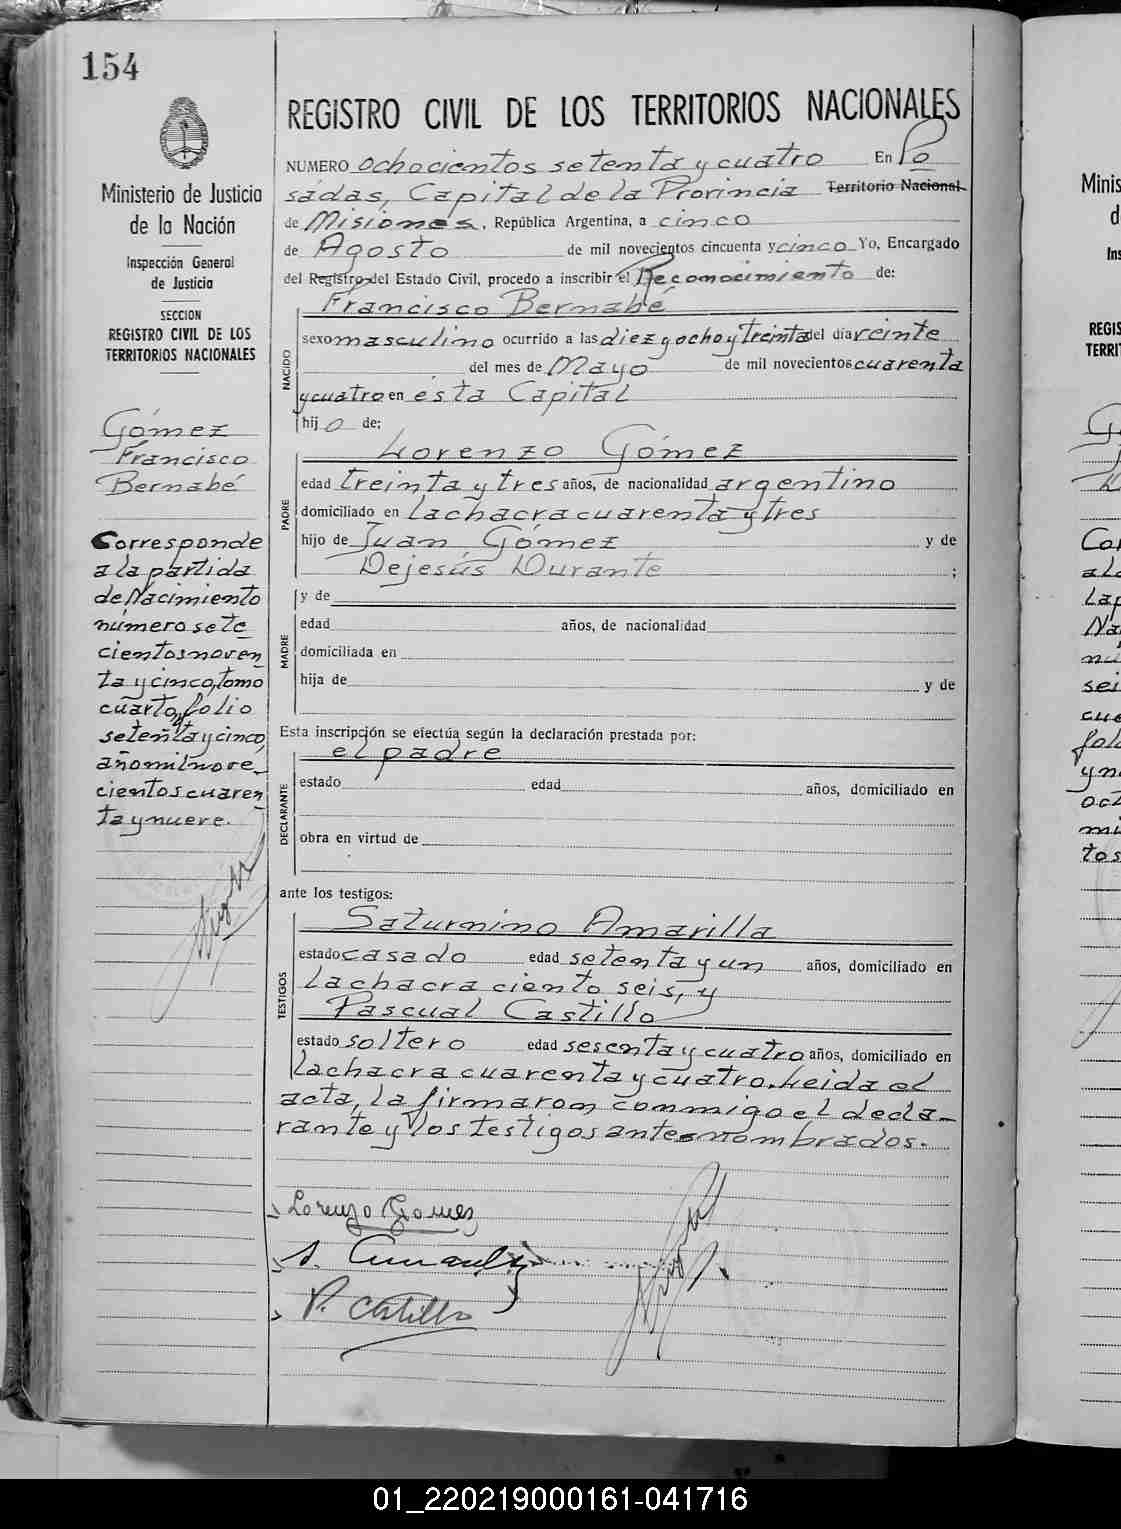 154
Ministerio de Justicia
de la Nación
Inspección General
de Justicia
SECCION
REGISTRO CIVIL DE LOS
TERRITORIOS NACIONALES
Gómez
Francisco
Bernabé
Corresponde
a la partida
de Nacimiento
número sete
cientos noven
ta y cinco, tomo
cuarto, folio
setenta y cinco,
año mil nove_
cientos cuaren
ta y nueve.
REGISTRO CIVIL DE LOS TERRITORIOS NACIONALES
NUMERO ochocientos setenta y cuatro En Po
sadas, Capital de la Provincia Territorio Nacional
de Misiones, República Argentina, a cinco
de Agosto de mil novecientos cincuenta y cinco Yo, Encargado
del Registro del Estado Civil, procedo a inscribir el Reconocimiento de:
Francisco Bernabé
NACIDO
sexo masculino ocurrido a las diez y ocho y treinta del día veinte
del mes de Mayo de mil novecientos cuarenta
y cuatro en ésta Capital
hijo de:
Lorenzo Gómez
PADRE
edad treinta y tres años, de nacionalidad argentino
domiciliado en la chacra cuarenta y tres
hijo de Juan Gómez y de
Dejesús Durante ;
MADRE
y de
edad años, de nacionalidad
domiciliada en
hija de y de
Esta inscripción se efectúa según la declaración prestada por:
el padre
DECLARANTE
estado edad años, domiciliado en
obra en virtud de
ante los testigos:
TESTIGOS
Saturnino Amarilla
estado casado edad setenta y un años, domiciliado en
la chacra ciento seis, y
Pascual Castillo
estado soltero edad sesenta y cuatro años, domiciliado en
la chacra cuarenta y cuatro. Leida el
acta, la firmaron conmigo el decla-
rante y los testigos antes nombrados.
Lorenzo Gomez
P. Castillo
Minis
d
Ins
REGIS
TERRI
Cor
a la
nú
sei
cue
folo
y no
oct
mi
tos
01_220219000161-041716